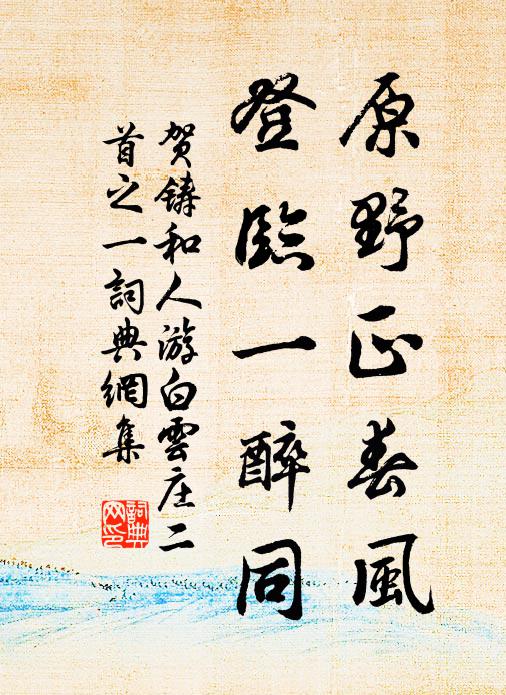 原野正春風
登臨一醉同
贺铸和人游白雲庄二
首之一詞典網集
詞典
网印